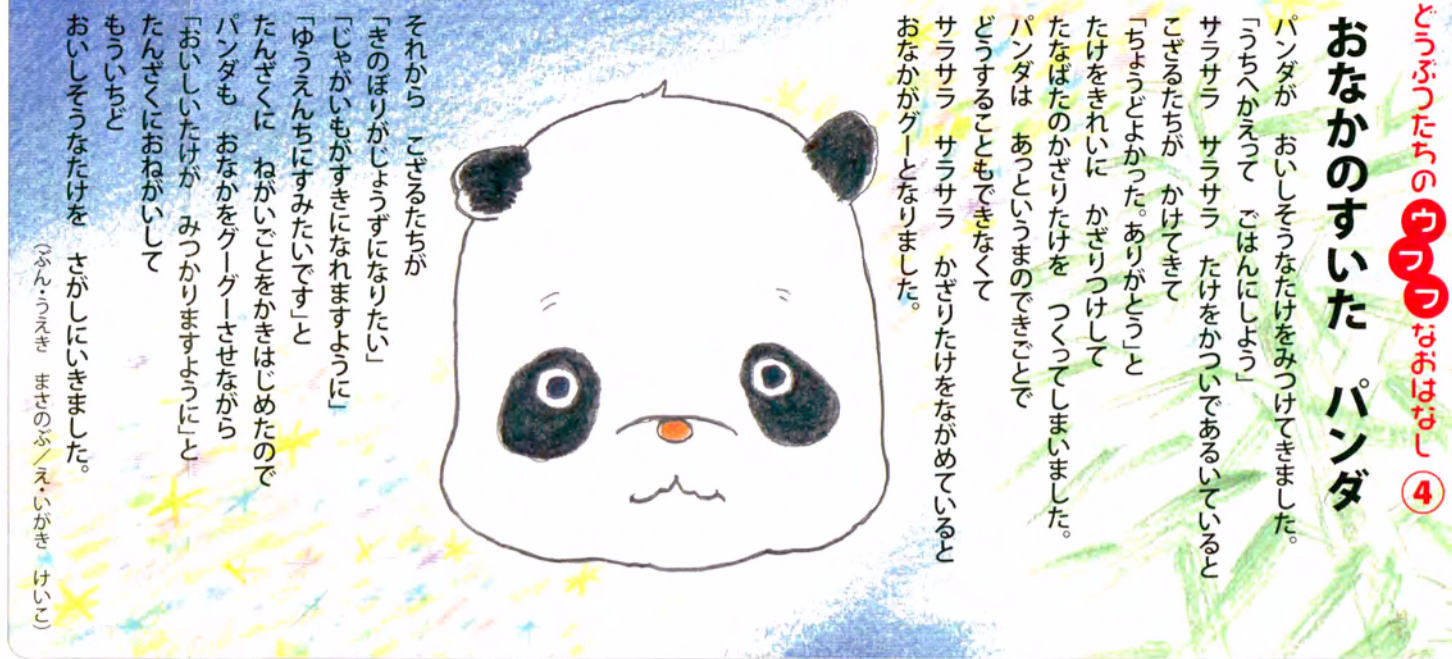 どうぶつたちのウフフなおはなし④
おなかのすいた　パンダ
パンダが　おいしそうなたけをみつけてきました。
「うちへかえって　ごはんにしよう」
サラサラ　サラサラ　たけをかついであるいていると
こざるたちが　かけてきて
「ちょうどよかった。ありがとう」と
たけをきれいに　かざりつけして
たなばたのかざりたけを　つくってしまいました。
パンダは　あっというまのできごとで
どうすることもできなくて
サラサラ　サラサラ　かざりたけをながめていると
おなかがグーとなりました。
それから　こざるたちが
「きのぼりがじょうずになりたい」
「じゃがいもがすきになれますように」
「ゆうえんちにすみたいです」と
たんざくに　ねがいごとをかきはじめたので
パンダも　おなかをグーグーさせながら
「おいしいたけが　みつかりますように」と
たんざくにおねがいして
もういちど
おいしそうなたけを　さがしにいきました。
（ぶん・うえき　まさのぶ／え・いがき　けいこ）